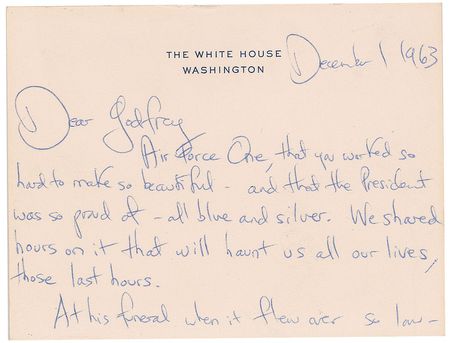 THE WHITE HOUSE
WASHINGTON
December 1 1963
Dear Godfrey
Air Force One, that you worked so
hard to make so beautiful - and that the President
was so proud of - all blue and silver. We shared
hours on it that will haunt us all our lives,
those last hours.
At his funeral when it flew over so low -